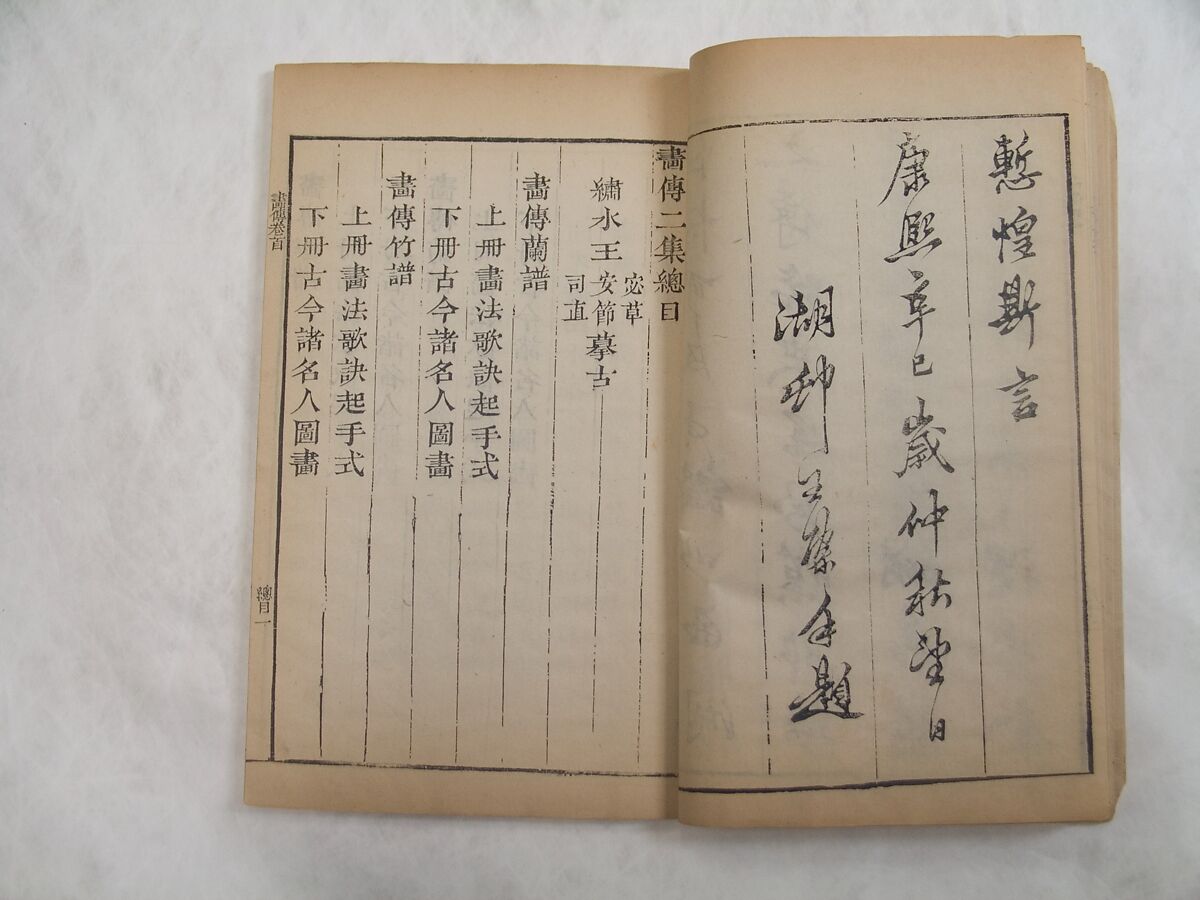 慙惶斯言
康熙辛巳歲仲秋望日
湖邨王槩手題
畫傳二集總目
繡水王宓草安節司直摹古
畫傳蘭譜
上冊畫法歌訣起手式
下冊古今諸名人圖畫
畫傳竹譜
上冊畫法歌訣起手式
下冊古今諸名人圖畫
畫傳卷首
總目一